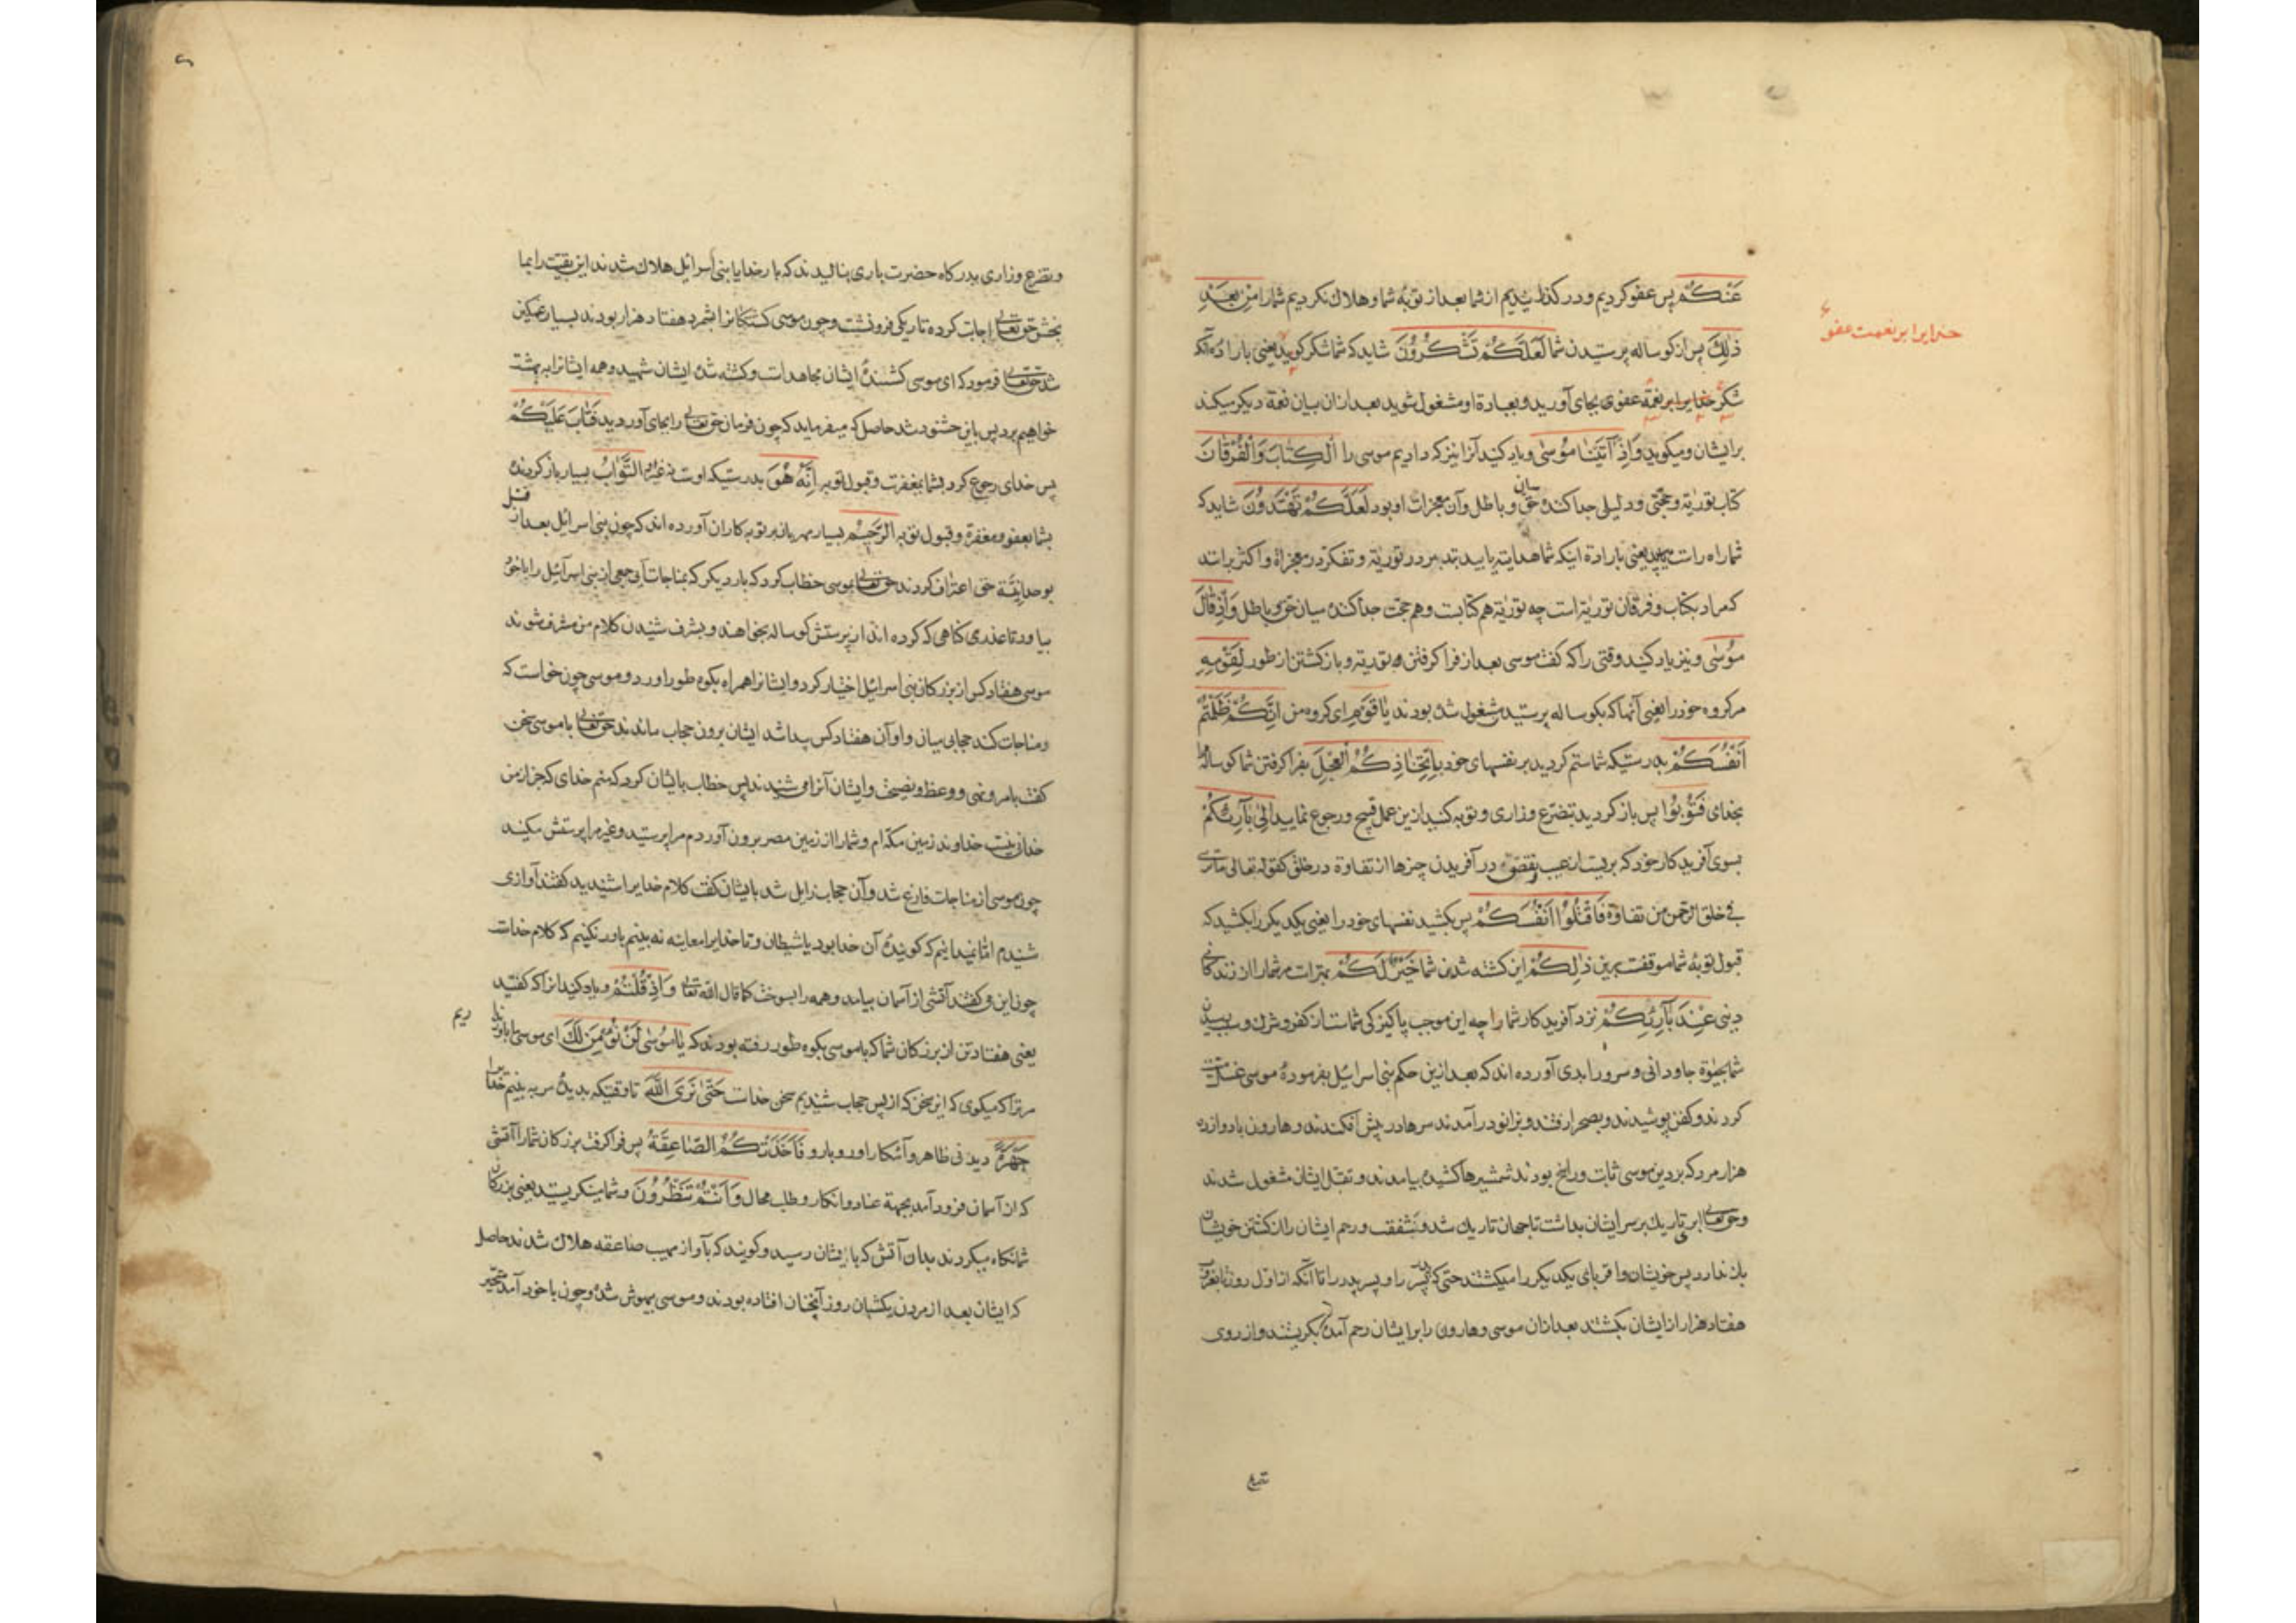 عَنْكُمْ پس عفو کردیم و در کذرانیدیم از شما بعد از توبهٔ شما و هلاک نکردیم شما را مِنْ بَعْدِ
ذٰلِكَ پس از کوساله پرستیدن شما لَعَلَّكُمْ تَشْكُرُونَ شاید که شما شکر کویید یعنی بارادهٔ آنکه
شکر خدایرا بر نعمة عفو بجای آورید و بعبادة او مشغول شوید بعد از آن بیان نعمة دیکر میکند
خدایرا بر نعمت عفو
بر ایشان و میکوید وَاِذْ آتَيْنَا مُوسٰى و یاد کنید آنرا نیز که دادیم موسی را الْكِتَابَ وَالْفُرْقَانَ
کتاب توریة و حجتی و دلیلی جدا کننده میان حق و باطل و آن معجزات او بود لَعَلَّكُمْ تَهْتَدُونَ شاید که
شما راه راست یابید یعنی بارادة اینکه شما هدایة یابید بتدبر در توریة و تفکر در معجزاة و اکثر برانند
که مراد بکتاب و فرقان توریة است چه توریة هم کتابست و هم حجت جدا کننده میان حق و باطل وَاِذْ قَالَ
مُوسٰى و نیز یاد کنید وقتی را که کفت موسی بعد از فرا کرفتن توریة و باز کشتن از طور لِقَوْمِهِ
مر کروه خود را یعنی آنها که بکوساله پرستیدن مشغول شده بودند يَا قَوْمِ ای کروه من اِنَّكُمْ ظَلَمْتُمْ
اَنْفُسَكُمْ بدرستیکه شما ستم کردید بر نفسهای خود بِاتِّخَاذِكُمُ الْعِجْلَ بفرا کرفتن شما کوساله را
بخدای فَتُوبُوا پس باز کردید بتضرع و زاری و توبه کنید ازین عمل قبیح و رجوع نمایید اِلٰى بَارِئِكُمْ
بسوی آفریدکار خود که بریست از عیب و نقص در آفریدن چیزها از تفاوة در خلق کقوله تعالی ما تری
فی خلق الرحمن من تفاوة فَاقْتُلُوا اَنْفُسَكُمْ پس بکشید نفسهای خود را یعنی یکدیکر را بکشید که
قبول توبهٔ شما موقفست برین ذٰلِكُمْ این کشته شدن شما خَيْرٌ لَكُمْ بهتر است مر شما را از زندکانی
دنیی عِنْدَ بَارِئِكُمْ نزد آفریدکار شما را چه این موجب پاکیزکی شماست از کفر و شرک و سبب رسیدن
شما بحیوة جاودانی و سرور ابدی آورده اند که بعد ازین حکم بنی اسرائیل بفرمودهٔ موسی غسل
کردند و کفن پوشیدند و بصحرا رفتند و بزانو در آمدند سرها در پیش افکندند و هارون با دوازده
هزار مرد که بر دین موسی ثابت و راسخ بودند شمشیرها کشیده بیامدند و بقتل ایشان مشغول شدند
و حق تعالی ابر تاریک بر سر ایشان بداشت تا جهان تاریک شد و شفقت و رحم ایشان را از کشتن خویشان
باز ندارد پس خویشان و اقربای یکدیکر را میکشتند حتی که پدر پسر را و پسر پدر را تا آنکه از اول روز تا بغروب
هفتاد هزار از ایشان بکشتند بعد از آن موسی و هارون را بر ایشان رحم آمد بکریستند و از روی
تضرع
و تضرع و زاری بدرکاه حضرت باری بنالیدند که بار خدایا بنی اسرائیل هلاک شدند این بقیت را بما
بخش حق تعالی اجابت کرده تاریکی فرو نشست و چون موسی کشتکانرا بشمرد هفتاد هزار بودند بسیار غمکین
شد حق تعالی فرمود که ای موسی کشنندهٔ ایشان مجاهد است و کشته شدهٔ ایشان شهید و همه ایشانرا به بهشت
خواهیم برد پس باین خشنود شد حاصل که میفرماید که چون فرمان حق تعالی را بجای آوردید فَتَابَ عَلَيْكُمْ
پس خدای رجوع کرد بشما بمغفرت و قبول توبه اِنَّهُ هُوَ بدرستیکه اوست نه غیر او التَّوَّابُ بسیار باز کردنده
بشما بعفو و مغفرة و قبول توبه الرَّحِيمُ بسیار مهربان بر توبه کاران آورده اند که چون بنی اسرائیل بعد از قتل
بوحدانیة حق اعتراف کردند حق تعالی بموسی خطاب کرد که بار دیکر که بمناجات آیی جمعی از بنی اسرآئیل را با خود
بیاور تا عذری کناهی که کرده اند از پرستش کوساله بخواهند و بشرف شنیدن کلام من مشرف شوند
موسی هفتاد کس از بزرکان بنی اسرائیل اختیار کرد و ایشانرا همراه بکوه طور آورد و موسی چون خواست که
مناجات کند حجابی میان او و آن هفتاد کس پیدا شد ایشان برون حجاب ماندند حق تعالی با موسی سخن
کفت بامر و نهی و وعظ و نصیحت و ایشان آنرا می شنیدند پس خطاب بایشان کرد که منم خدای که جز از من
خدای نیست خداوند زمین مکه ام و شما را از زمین مصر برون آوردم مرا پرستید و غیر مرا پرستش مکنید
چون موسی از مناجات فارغ شد و آن حجاب زایل شد بایشان کفت کلام خدایرا شنیدید کفتند آوازی
شنیدیم اما نمیدانیم که کویندهٔ آن خدا بود یا شیطان و تا خدایرا معاینه نه بینیم باور نکنیم که کلام خداست
چون این کفتند آتشی از آسمان بیامد و همه را بسوخت کما قال الله تعالی وَاِذْ قُلْتُمْ و یاد کنید آنرا که کفتید
یعنی هفتاد تن از بزرکان شما که با موسی بکوه طور رفته بودند که يَا مُوسٰى لَنْ نُؤْمِنَ لَكَ ای موسی ما باور نداریم
مر ترا که میکوی که این سخن که از پس حجاب شنیدیم سخن خداست حَتّٰى نَرَى اللّٰهَ تا وقتیکه بدیدهٔ سر به بینیم خدا را
جَهْرَةً دیدنی ظاهر و آشکارا و رو بارو فَاَخَذَتْكُمُ الصَّاعِقَةُ پس فرا کرفت بزرکان شما را آتشی
که از آسمان فرود آمد بجهة عناد و انکار و طلب محال وَاَنْتُمْ تَنْظُرُونَ و شما مینکریستید یعنی بزرکان
شما نکاه میکردند بدان آتش که بایشان رسید و کویند که بآواز مهیب صاعقه هلاک شدند حاصل
که ایشان بعد از مردن یکشبان روز آنچنان افتاده بودند و موسی بیهوش شده و چون با خود آمد متحیر